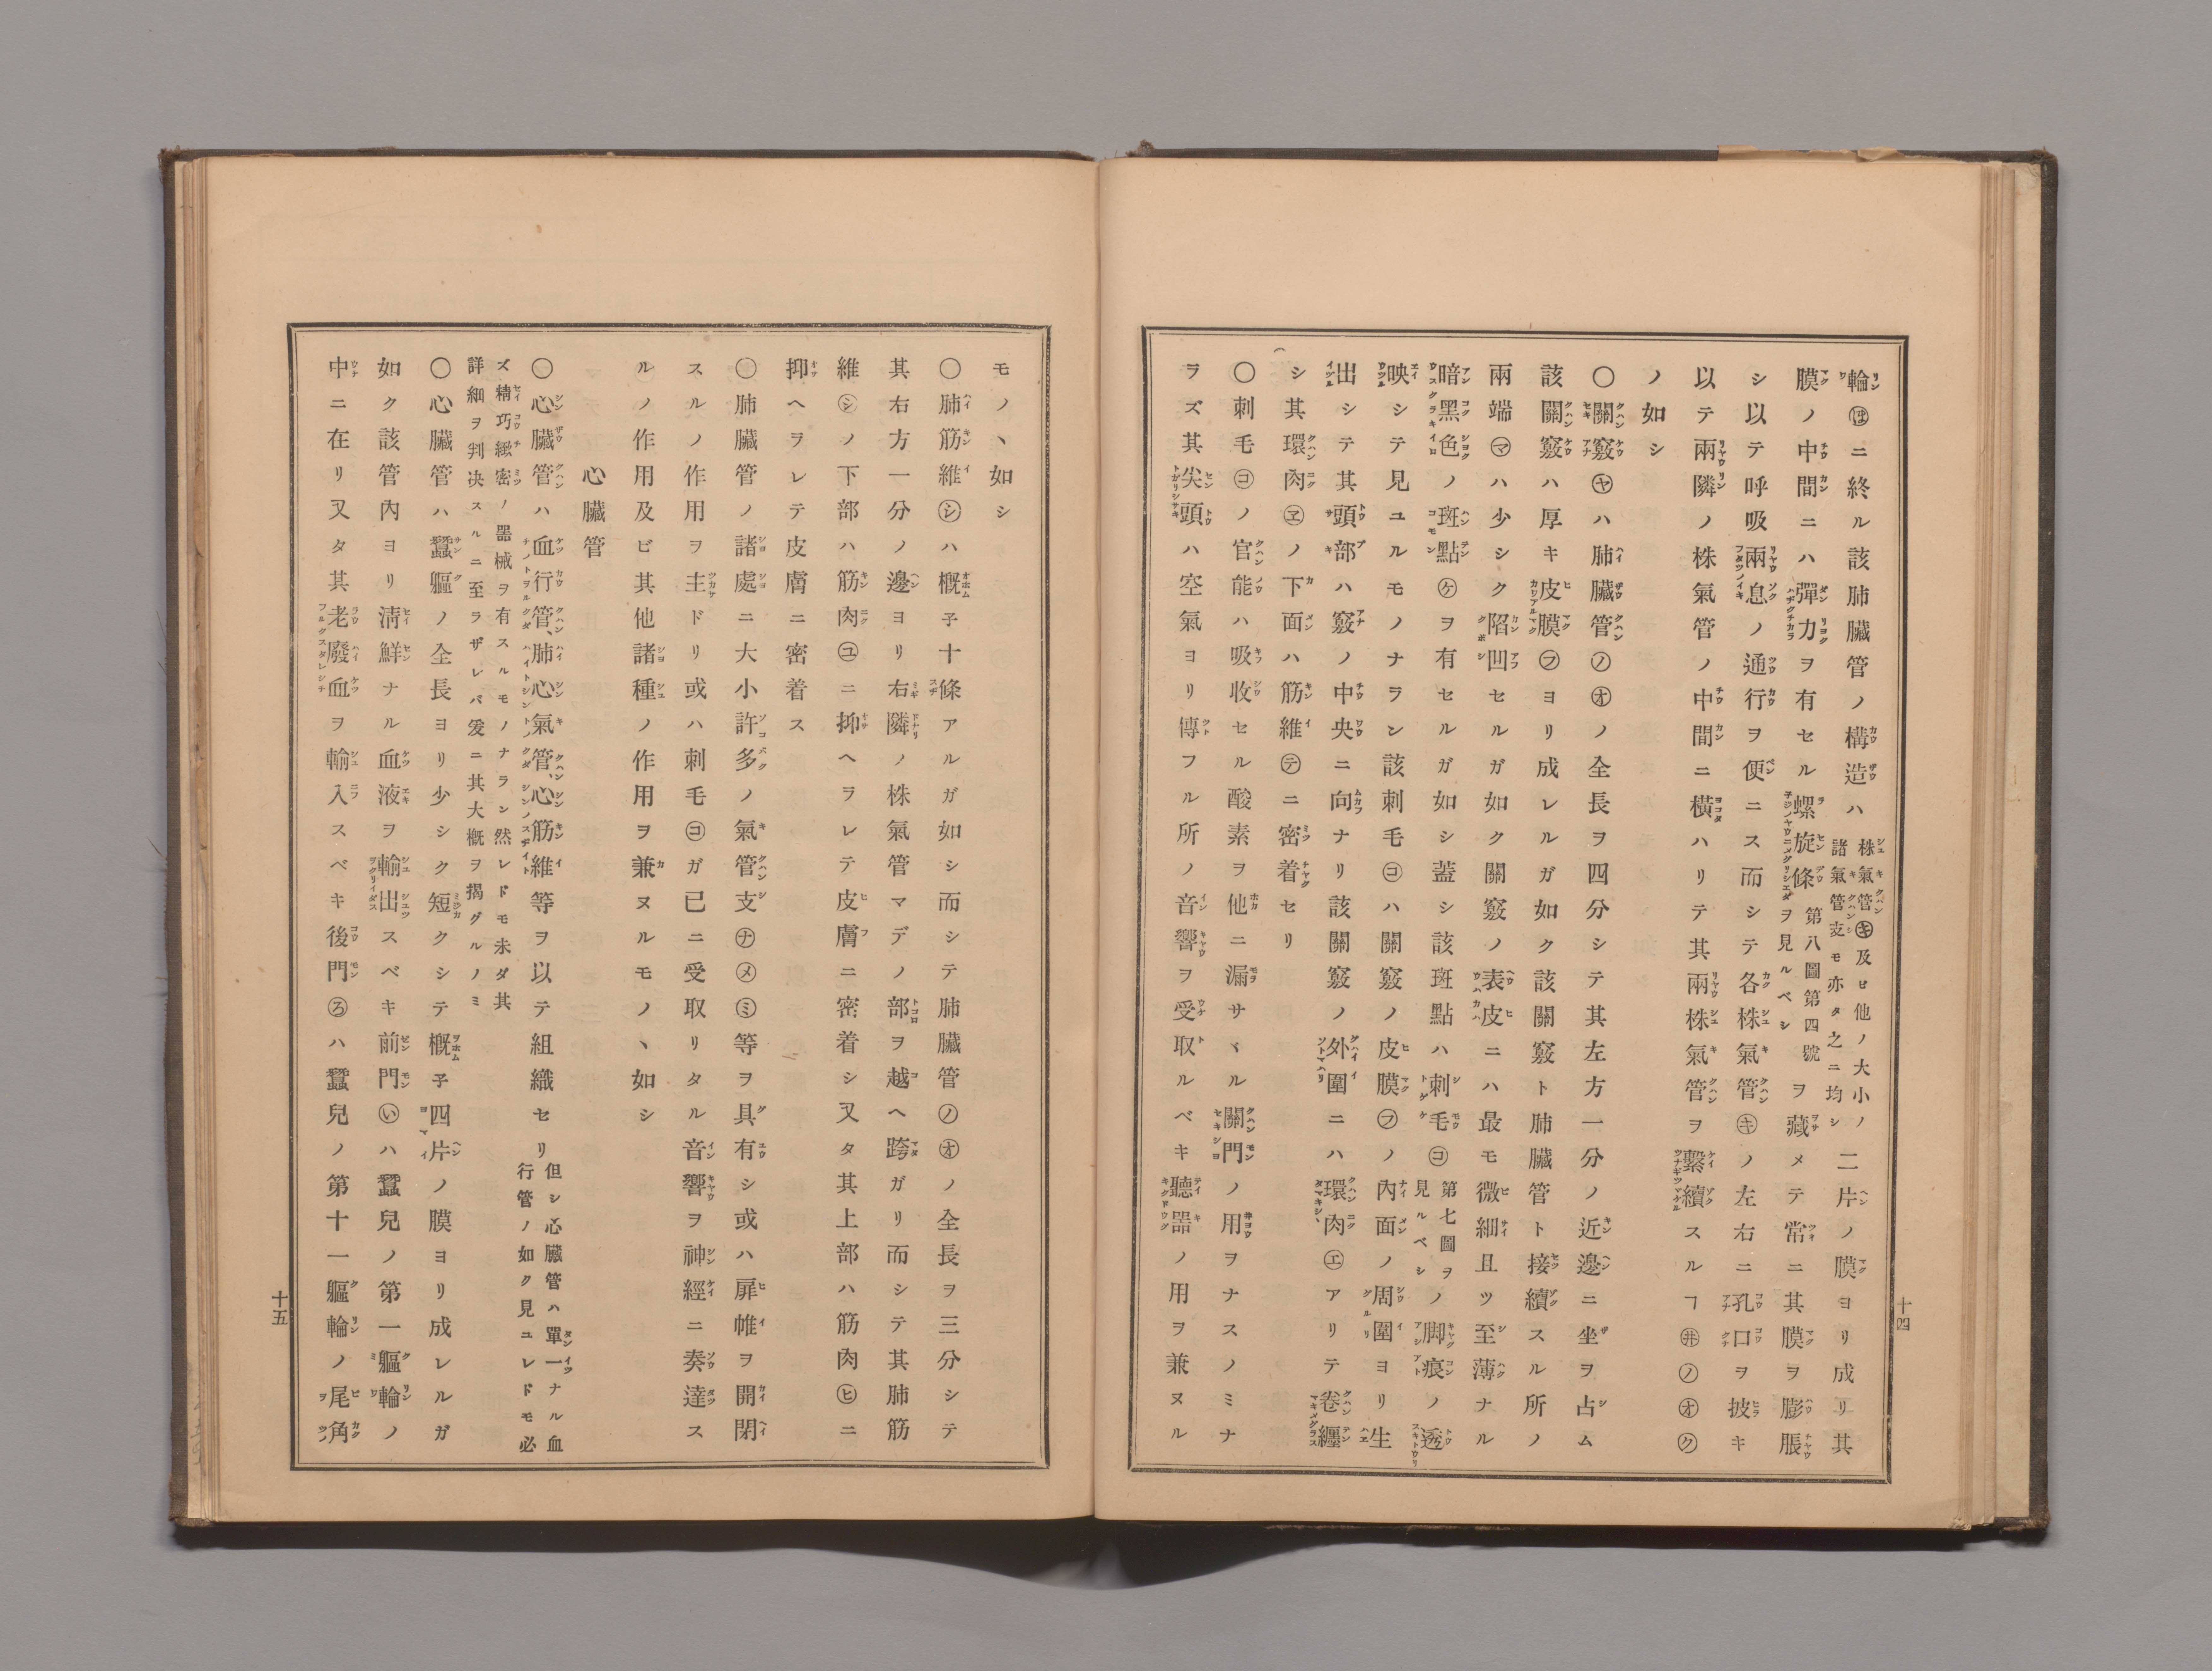 十四
輪㋩ニ終ル該肺臟管ノ構造ハ株氣管㋖及ヒ他ノ大小ノ諸氣管支モ亦タ之ニ均シ二片ノ膜ヨリ成リ其
膜ノ中間ニハ彈力ヲ有セル螺旋條第八圖第四號ヲ見ルベシヲ藏メテ常ニ其膜ヲ膨脹
シ以テ呼吸兩息ノ通行ヲ便ニス而シテ各株氣管㋖ノ左右ニ孔口ヲ披キ
以テ兩隣ノ株氣管ノ中間ニ橫ハリテ其兩株氣管ヲ繫續スルヿ㋼㋨㋔㋗
ノ如シ
〇關竅㋳ハ肺臟管㋨㋔ノ全長ヲ四分シテ其左方一分ノ近邊ニ坐ヲ占ム
該關竅ハ厚キ皮膜㋫ヨリ成レルガ如ク該關竅ト肺臟管ト接續スル所ノ
兩端㋮ハ少シク陷凹セルガ如ク關竅ノ表皮ニハ最モ微細且ツ至薄ナル
暗黑色ノ斑點㋘ヲ有セルガ如シ蓋シ該斑點ハ刺毛㋙第七圖ヲ見ルベシノ脚痕ノ透
映シテ見ユルモノナラン該刺毛㋙ハ關竅ノ皮膜㋫ノ內面ノ周圍ヨリ生
出シテ其頭部ハ竅ノ中央ニ向ナリ該關竅ノ外圍ニハ環肉㋓アリテ卷纒
シ其環肉㋽ノ下面ハ筋維㋢ニ密着セリ
〇刺毛㋙ノ官能ハ吸收セル酸素ヲ他ニ漏サヾル關門ノ用ヲナスノミナ
ラズ其尖頭ハ空氣ヨリ傳フル所ノ音響ヲ受取ルベキ聽器ノ用ヲ兼ヌル
モノヽ如シ
〇肺筋維㋛ハ概子十條アルガ如シ而シテ肺臟管㋨㋔ノ全長ヲ三分シテ
其右方一分ノ邊ヨリ右隣ノ株氣管マデノ部ヲ越ヘ跨ガリ而シテ其肺筋
維㋛ノ下部ハ筋肉㋴ニ抑ヘヲレテ皮膚ニ密着シ又タ其上部ハ筋肉㋪ニ
抑ヘヲレテ皮膚ニ密着ス
〇肺臟管㋨諸處ニ大小許多ノ氣管支㋤㋱㋯等ヲ具有シ或ハ扉帷ヲ開閉
スルノ作用ヲ主ドリ或ハ刺毛㋙ガ已ニ受取リタル音響ヲ神經ニ奏達ス
ルノ作用及ビ其他諸種ノ作用ヲ兼ヌルモノヽ如シ
心臟管
〇心臟管ハ血行管、肺心氣管、心筋維等ヲ以テ組織セリ但シ心臟管ハ單一ナル血行管ノ如ク見ユレドモ必
ズ精巧緻密ノ器械ヲ有スルモノナラン然レドモ未ダ其
詳細ヲ判决スルニ至ラザレバ爰ニ其大概ヲ揭グルノミ
〇心臟管ハ蠶軀ノ全長ヨリ少シク短クシテ概子四片ノ膜ヨリ成レルガ
如ク該管內ヨリ淸鮮ナル血液ヲ輸出スベキ前門㋑ハ蠶兒ノ第一軀輪ノ
中ニ在リ又タ其老廢血ヲ輸入スベキ後門㋺ハ蠶兒ノ第十一軀輪ノ尾角
十五